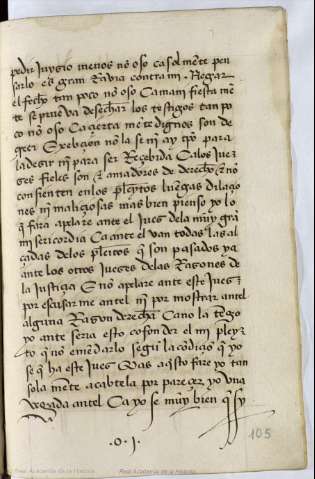 pedir juyzio menos no oso ca solmẽte pen
sarlo es gran Rauia contra mi. Negar
el fecho tan poco no oso Ca mani fiesta mẽ
te se prueva desechar los testigos tan po
co no oso Ca çierta mẽte dignos son de
creer Exebçion no la se ni ay tpõ para
la desir ni para ser Reçebida Ca los jue
zes fieles son & amadores de derecho & nõ
consienten enlos pleytos luengas dilaçio
nes ni maliçiosas mas bien pienso yo lo
q̃ fara apelare ante el juez dela muy grã
misericordia Ca ante el van todas las al
çadas delos pleitos q̃ son pasados ya
ante los otros jueses delas Rasones de
la justiçia E no apelare ante este juez
por escusar me antel ni por mostrar antel
alguna Razon derecha Ca no la tẽgo
yo ante seria esto cofonder el mi pley
to q̃ no emẽdarlo segũ la cõdiçiõ q̃ yo
se q̃ ha este juez Mas aq̃sto fare yo tan
sola mẽte acabtela por pareçer yo vna
vegada antel Ca yo se muy bien q̃ sy
.o.j.
105
Real Academia de la Historia